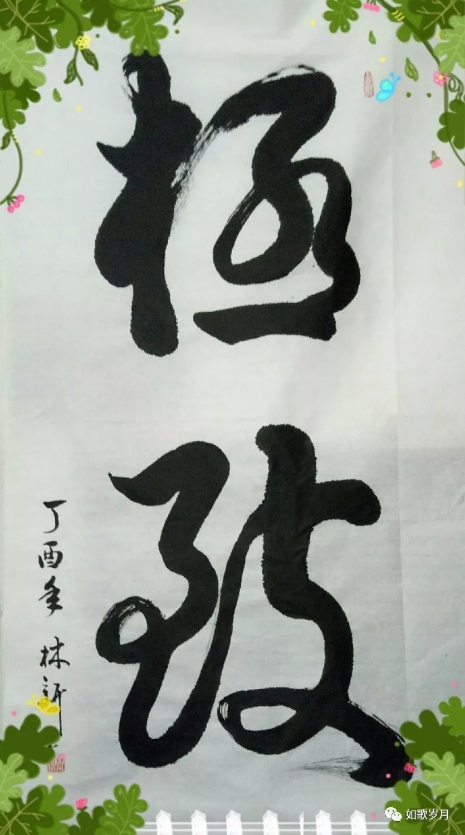 極致
丁酉年 林
如歌岁月